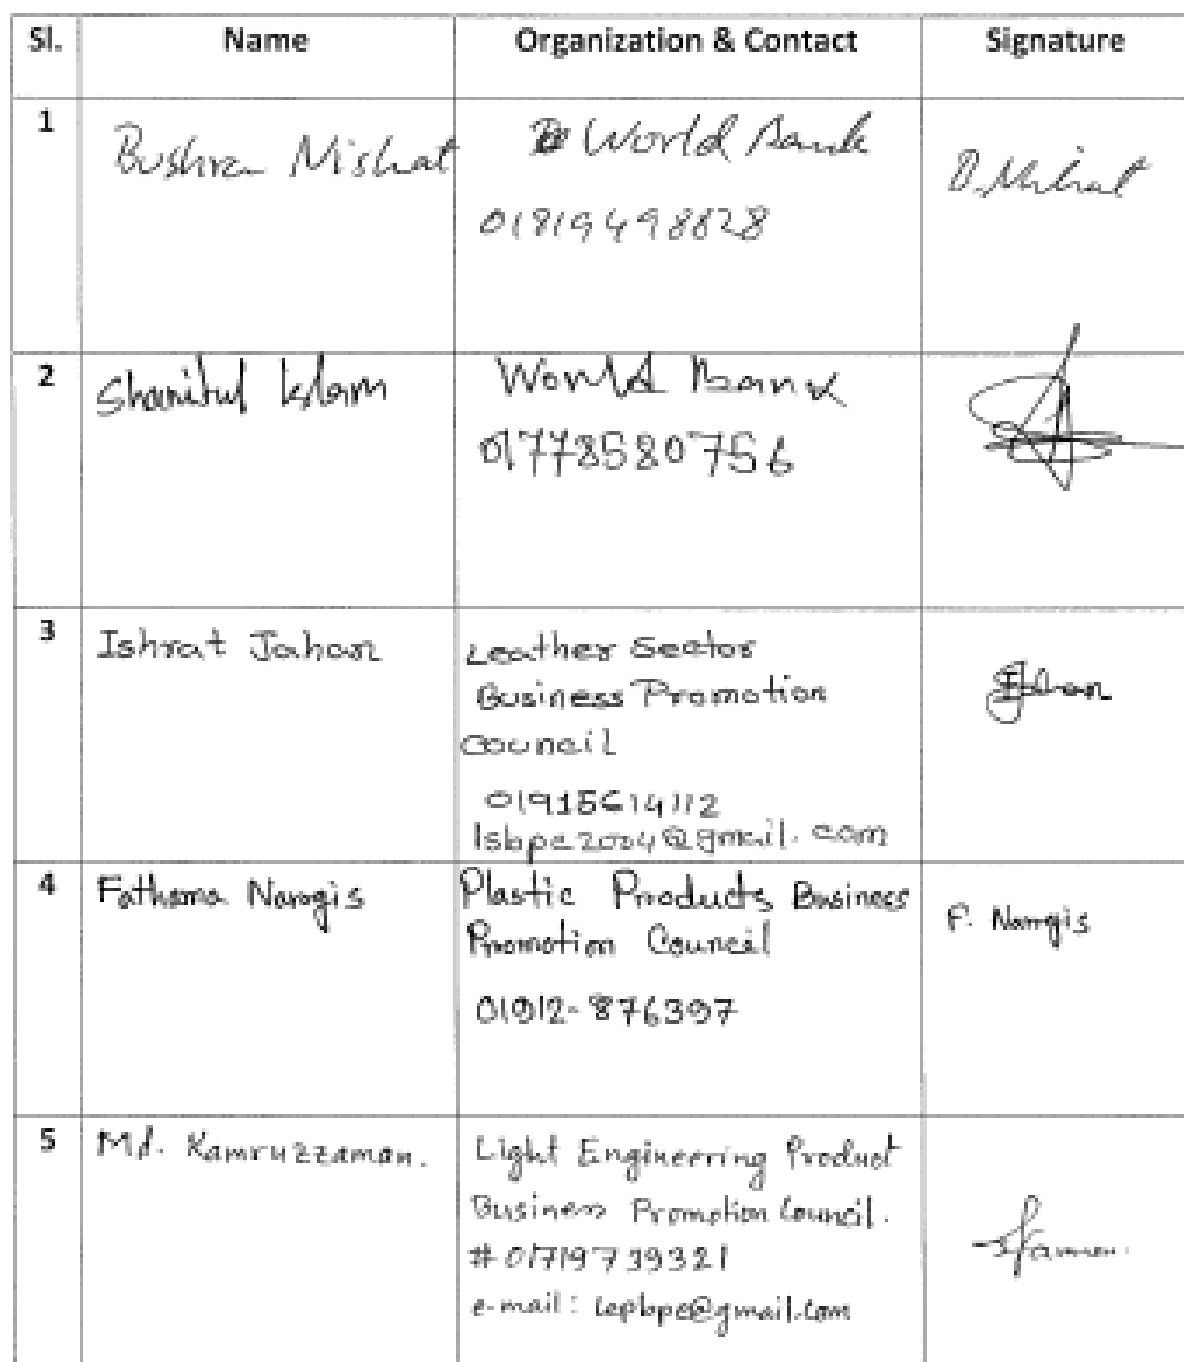 Sl. Name Organization & Contact Signature
1 Bushra Mishat World Bank B. Mishat
01819498828
2 World Bank
01778580756
3 Ishrat Jahan Leather Sector
Business Promotion Jahan
Council
01915614112
lsbpc2004@gmail.com
4 Fathema Nargis Plastic Products Business
Promotion Council F. Nargis
01912-876397
5 Md. Kamruzzaman. Light Engineering Product
Business Promotion Council.
# 01719739321
e-mail: lepbpc@gmail.com